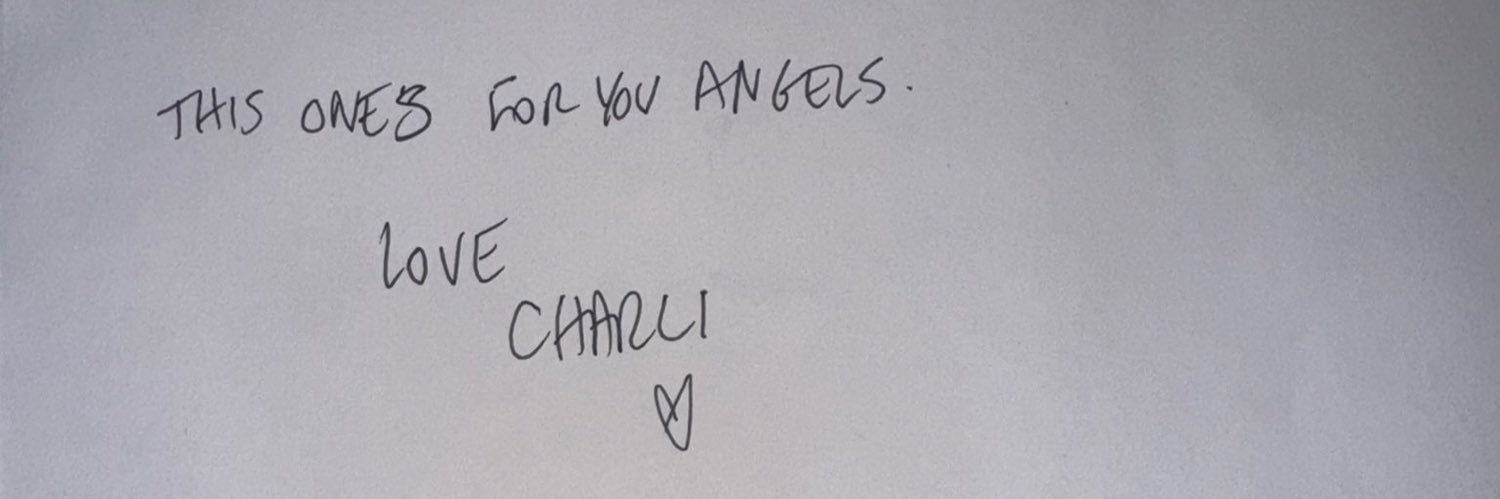 THIS ONES FOR YOU ANGELS.
LOVE
CHARLI